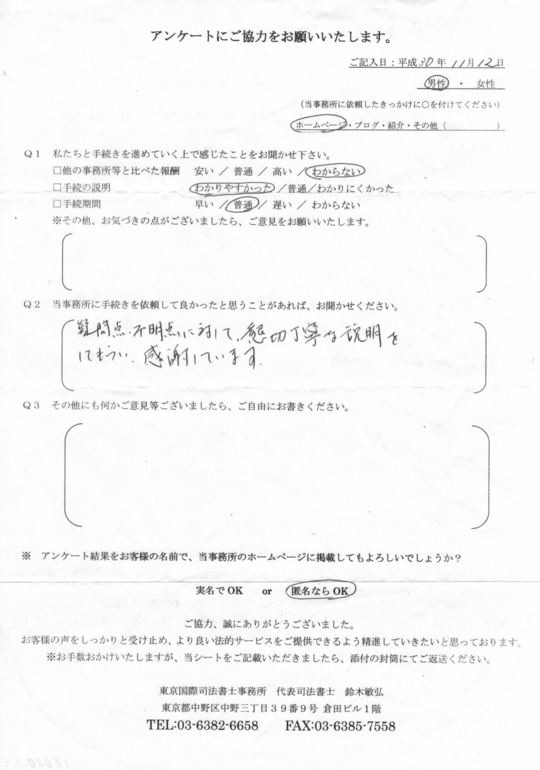 アンケートにご協力をお願いいたします。
ご記入日：平成30年11月12日
男性 ・ 女性
（当事務所に依頼したきっかけに○を付けてください）
ホームページ・ブログ・紹介・その他（　　　　　）
Ｑ１　私たちと手続きを進めていく上で感じたことをお聞かせ下さい。
□他の事務所等と比べた報酬　安い ／ 普通 ／ 高い ／ わからない
□手続の説明　わかりやすかった ／普通／わかりにくかった
□手続期間　早い ／ 普通 ／ 遅い ／ わからない
※その他、お気づきの点がございましたら、ご意見をお願いいたします。
Ｑ２　当事務所に手続きを依頼して良かったと思うことがあれば、お聞かせください。
疑問点、不明点に対して、懇切丁寧な説明を
してもらい、感謝しています。
Ｑ３　その他にも何かご意見等ございましたら、ご自由にお書きください。
※　アンケート結果をお客様の名前で、当事務所のホームページに掲載してもよろしいでしょうか？
実名でOK　or　匿名ならOK
ご協力、誠にありがとうございました。
お客様の声をしっかりと受け止め、より良い法的サービスをご提供できるよう精進していきたいと思っております。
※お手数おかけいたしますが、当シートをご記載いただきましたら、添付の封筒にてご返送ください。
東京国際司法書士事務所　代表司法書士　鈴木敏弘
東京都中野区中野三丁目３９番９号 倉田ビル１階
TEL:03-6382-6658　FAX:03-6385-7558